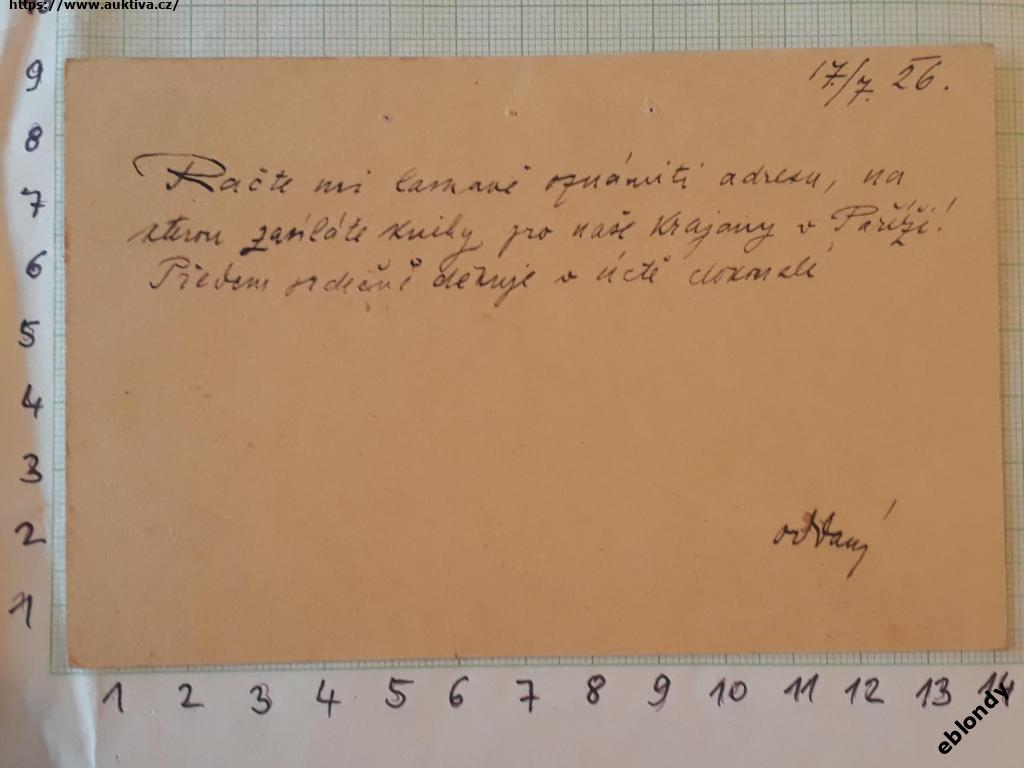 https://www.auktiva.cz/
17./7. 26.
Račte mi laskavě oznámiti adresu, na
kterou zasíláte knihy pro naše krajany v Paříži!
Předem srdečně děkuje v úctě dokonalé
oddaný
9
8
7
6
5
4
3
2
1
1 2 3 4 5 6 7 8 9 10 11 12 13 14
eblondy